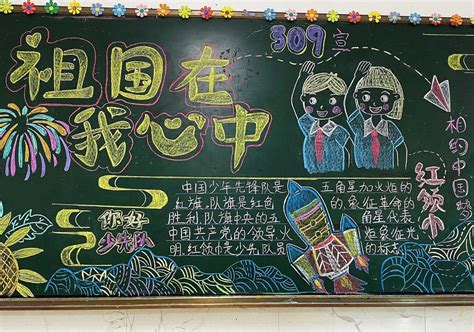 祖国在
我心中
309宣
相约中国梦
红领巾
你好
少先队
中国少年先锋队是 五角星加火炬的
红旗,队旗是红色 的,象征革命的
胜利,队旗中央的五 角星代表
中国共产党的领导火 炬象征光
明,红领巾是少先队员 的标志